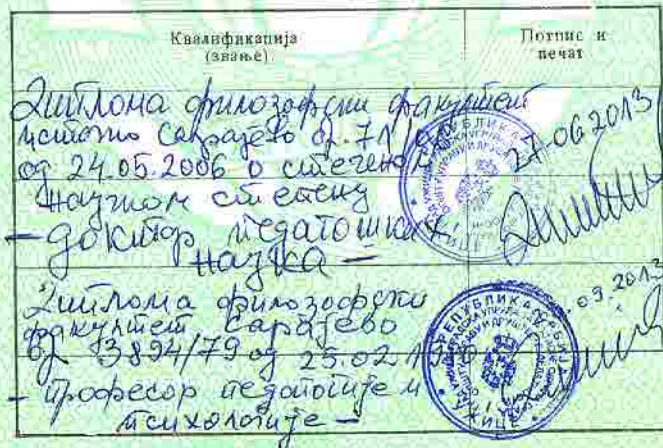 Квалификација
(звање)
Потпис и
печат
Диплома филозофски факултет
источно Сарајево бр. 71
од 24.05.2006 о стеченом
научном степену
- доктор педагошких
наука -
27.06.2013
РЕПУБЛИКА
Диплома филозофски
факултет Сарајево
бр 3894/79 од 25.02
- професор педагогије и
психологије -
09.2013
РЕПУБЛИКА СРБИЈА